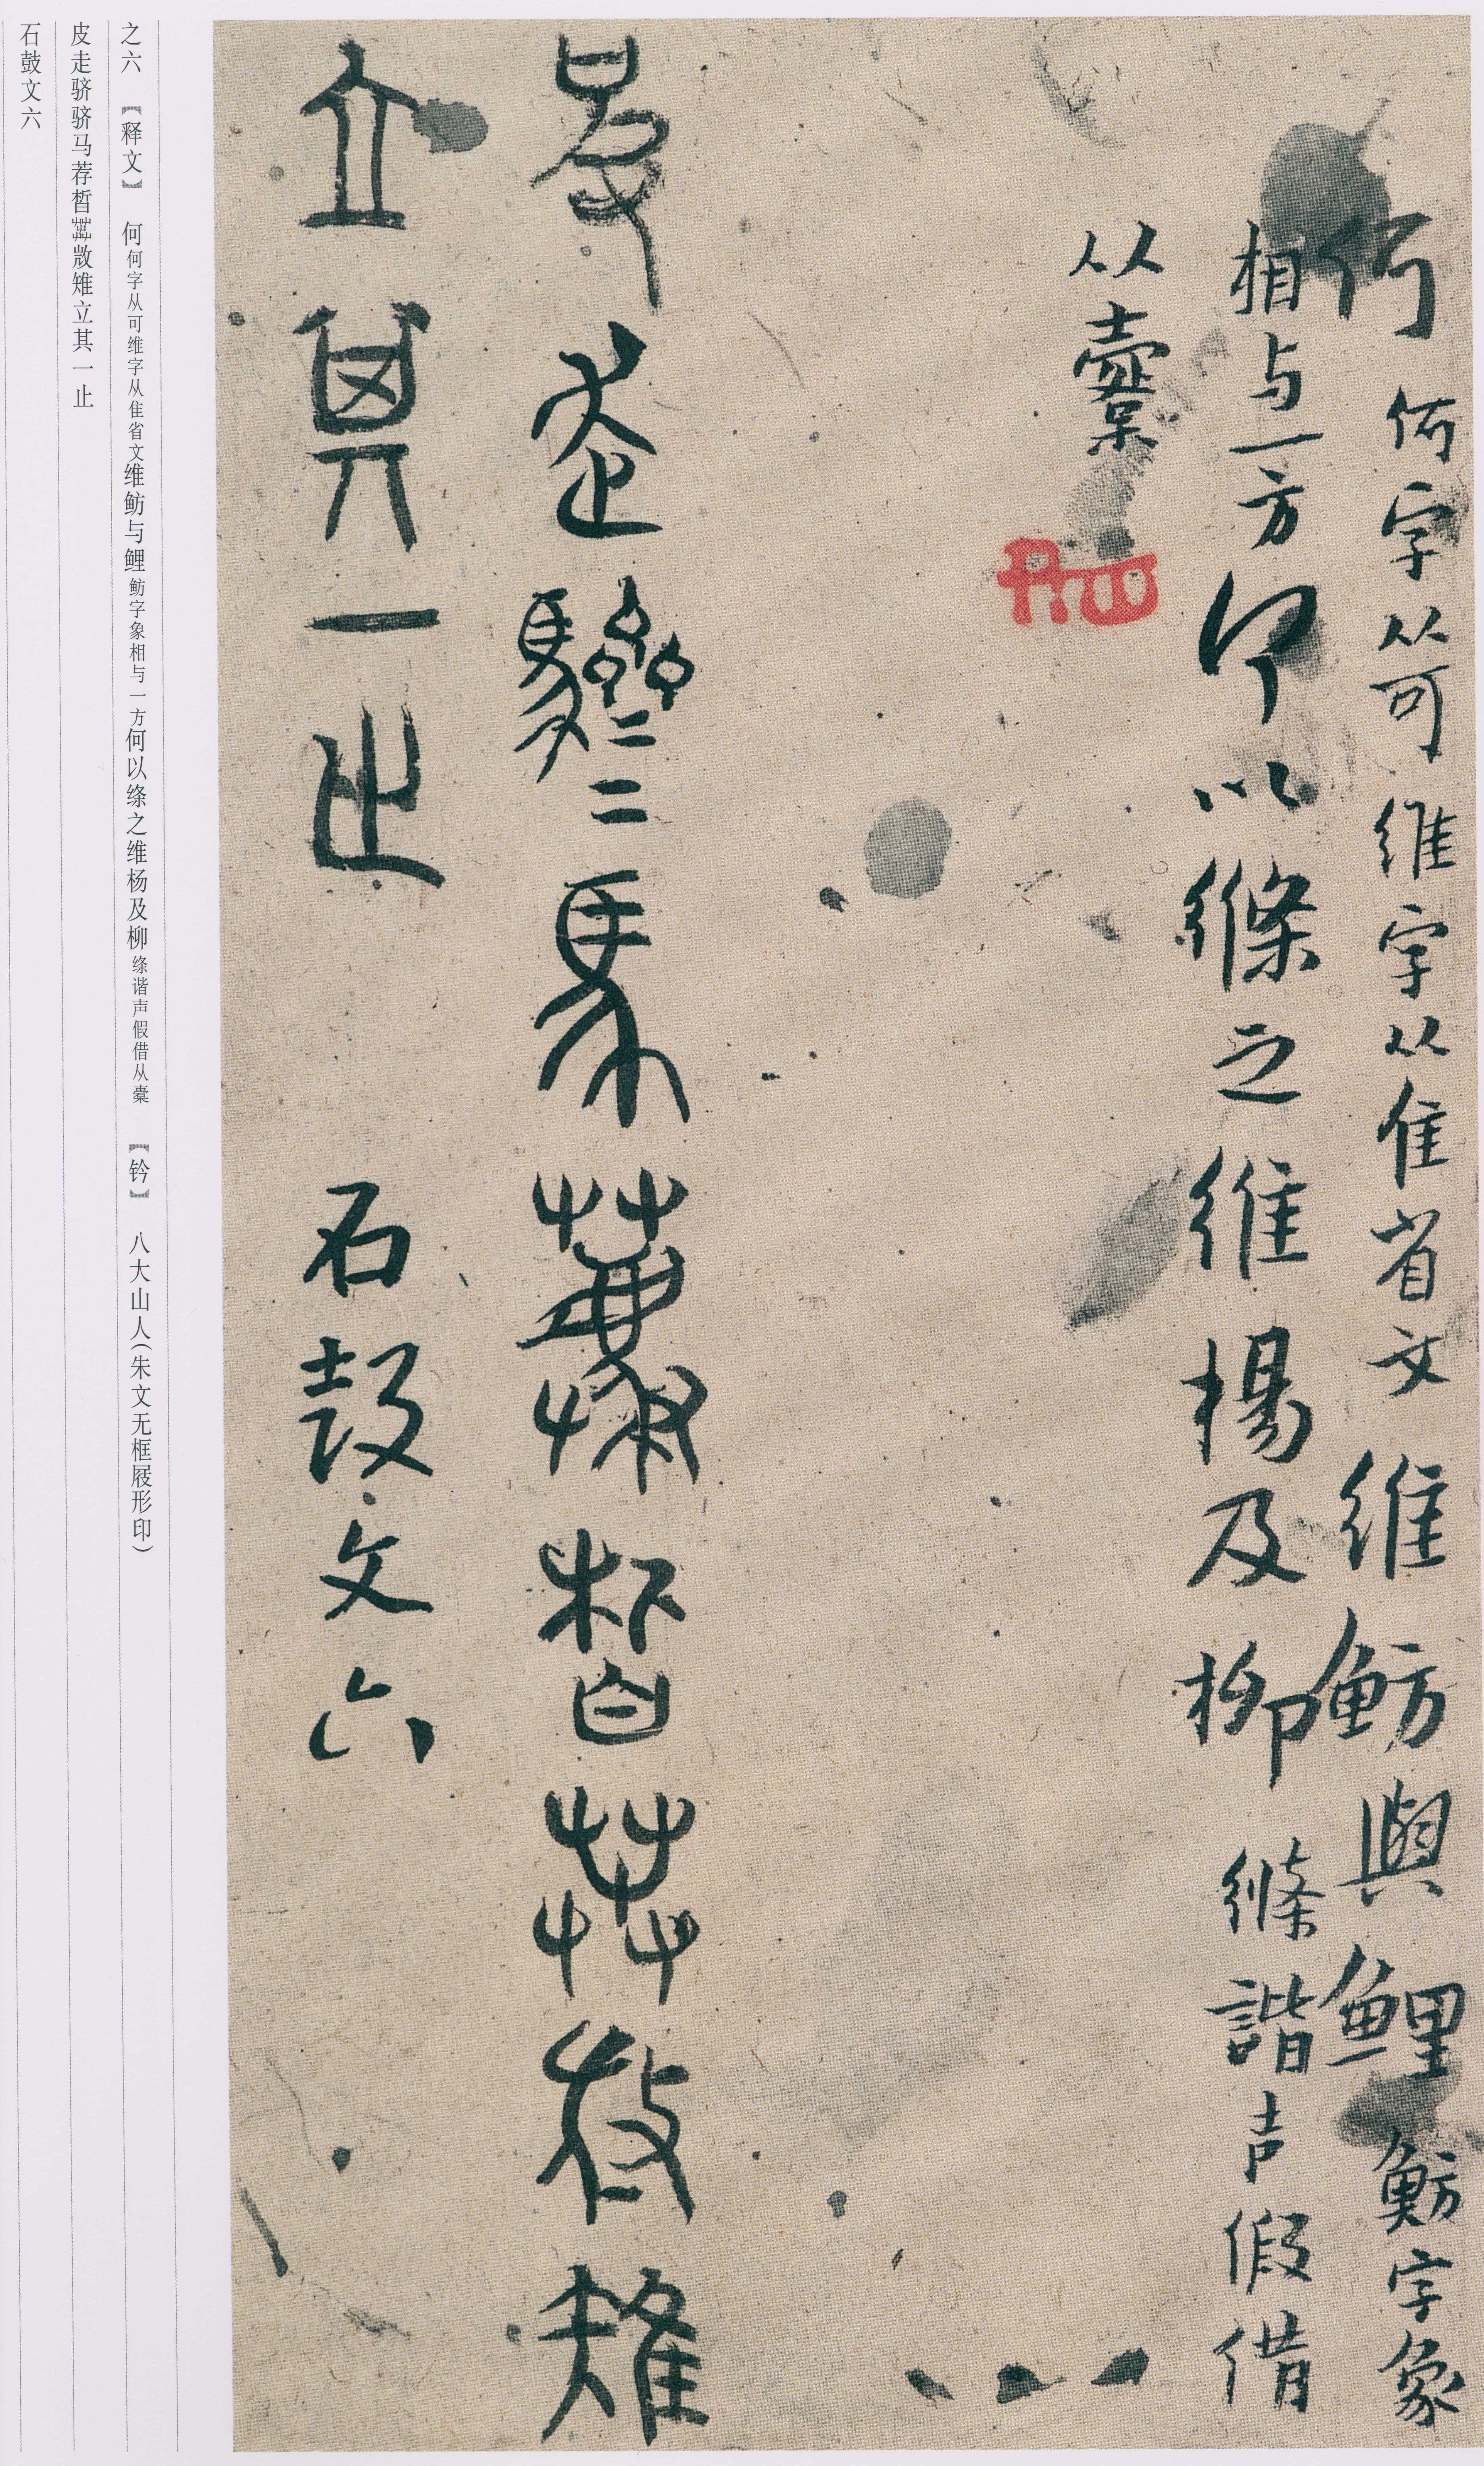 何 何字从可维字从隹省文 维魴與鯉 魴字象
相与一方 何以絛之维楊及柳 絛諧声假借
从橐
走 二二馬薦皙 雉
立其一止 石鼓文六
之六 【释文】 何何字从可维字从隹省文维鲂与鲤鲂字象相与一方何以绦之维杨及柳绦谐声假借从橐 【钤】 八大山人（朱文无框屐形印）
皮走骄骄马荐皙 敳雉立其一止
石鼓文六